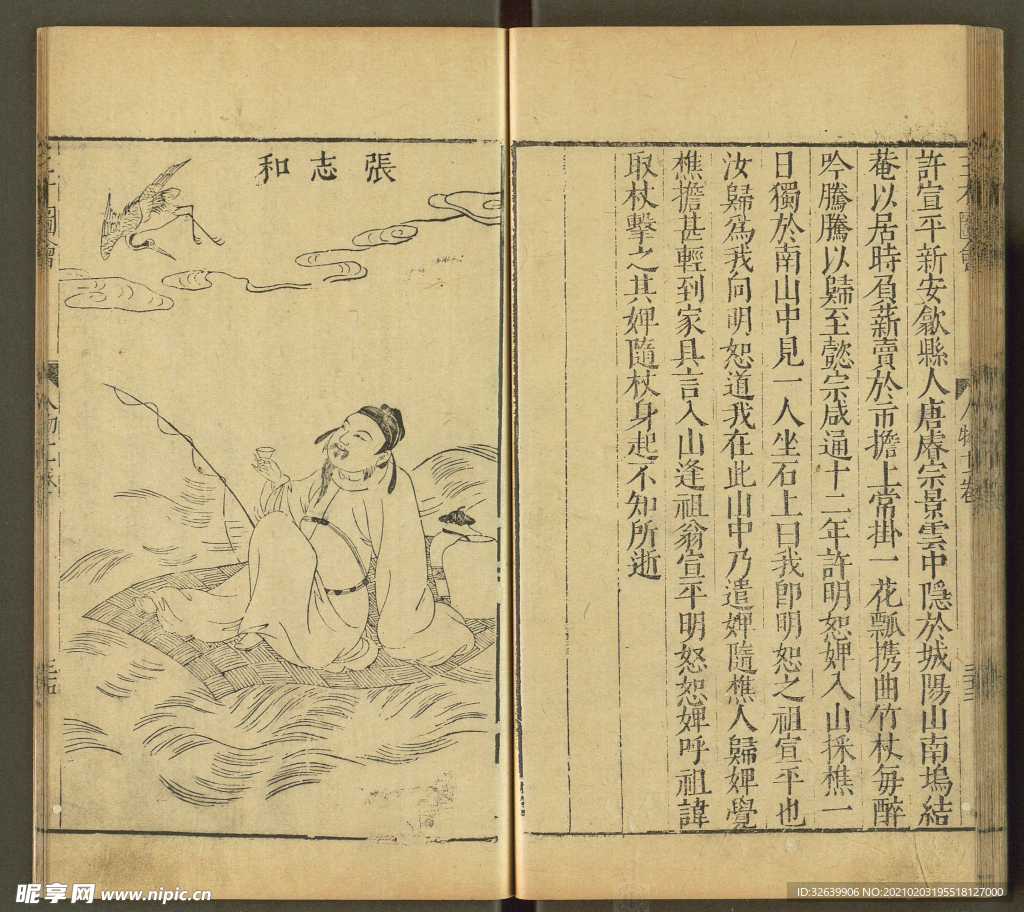 許宣平新安歙縣人唐睿宗景雲中隱於城陽山南塢結
菴以居時負薪賣於市擔上常掛一花瓢携曲竹杖每醉
吟騰騰以歸至懿宗咸通十二年許明恕婢入山採樵一
日獨於南山中見一人坐石上曰我卽明恕之祖宣平也
汝歸爲我向明恕道我在此山中乃遣婢隨樵人歸婢覺
樵擔甚輕到家具言入山逢祖翁宣平明怒恕婢呼祖諱
取杖擊之其婢隨杖身起不知所逝
張志和
昵享网 www.nipic.cn
ID:32639906 NO:20210203195518127000